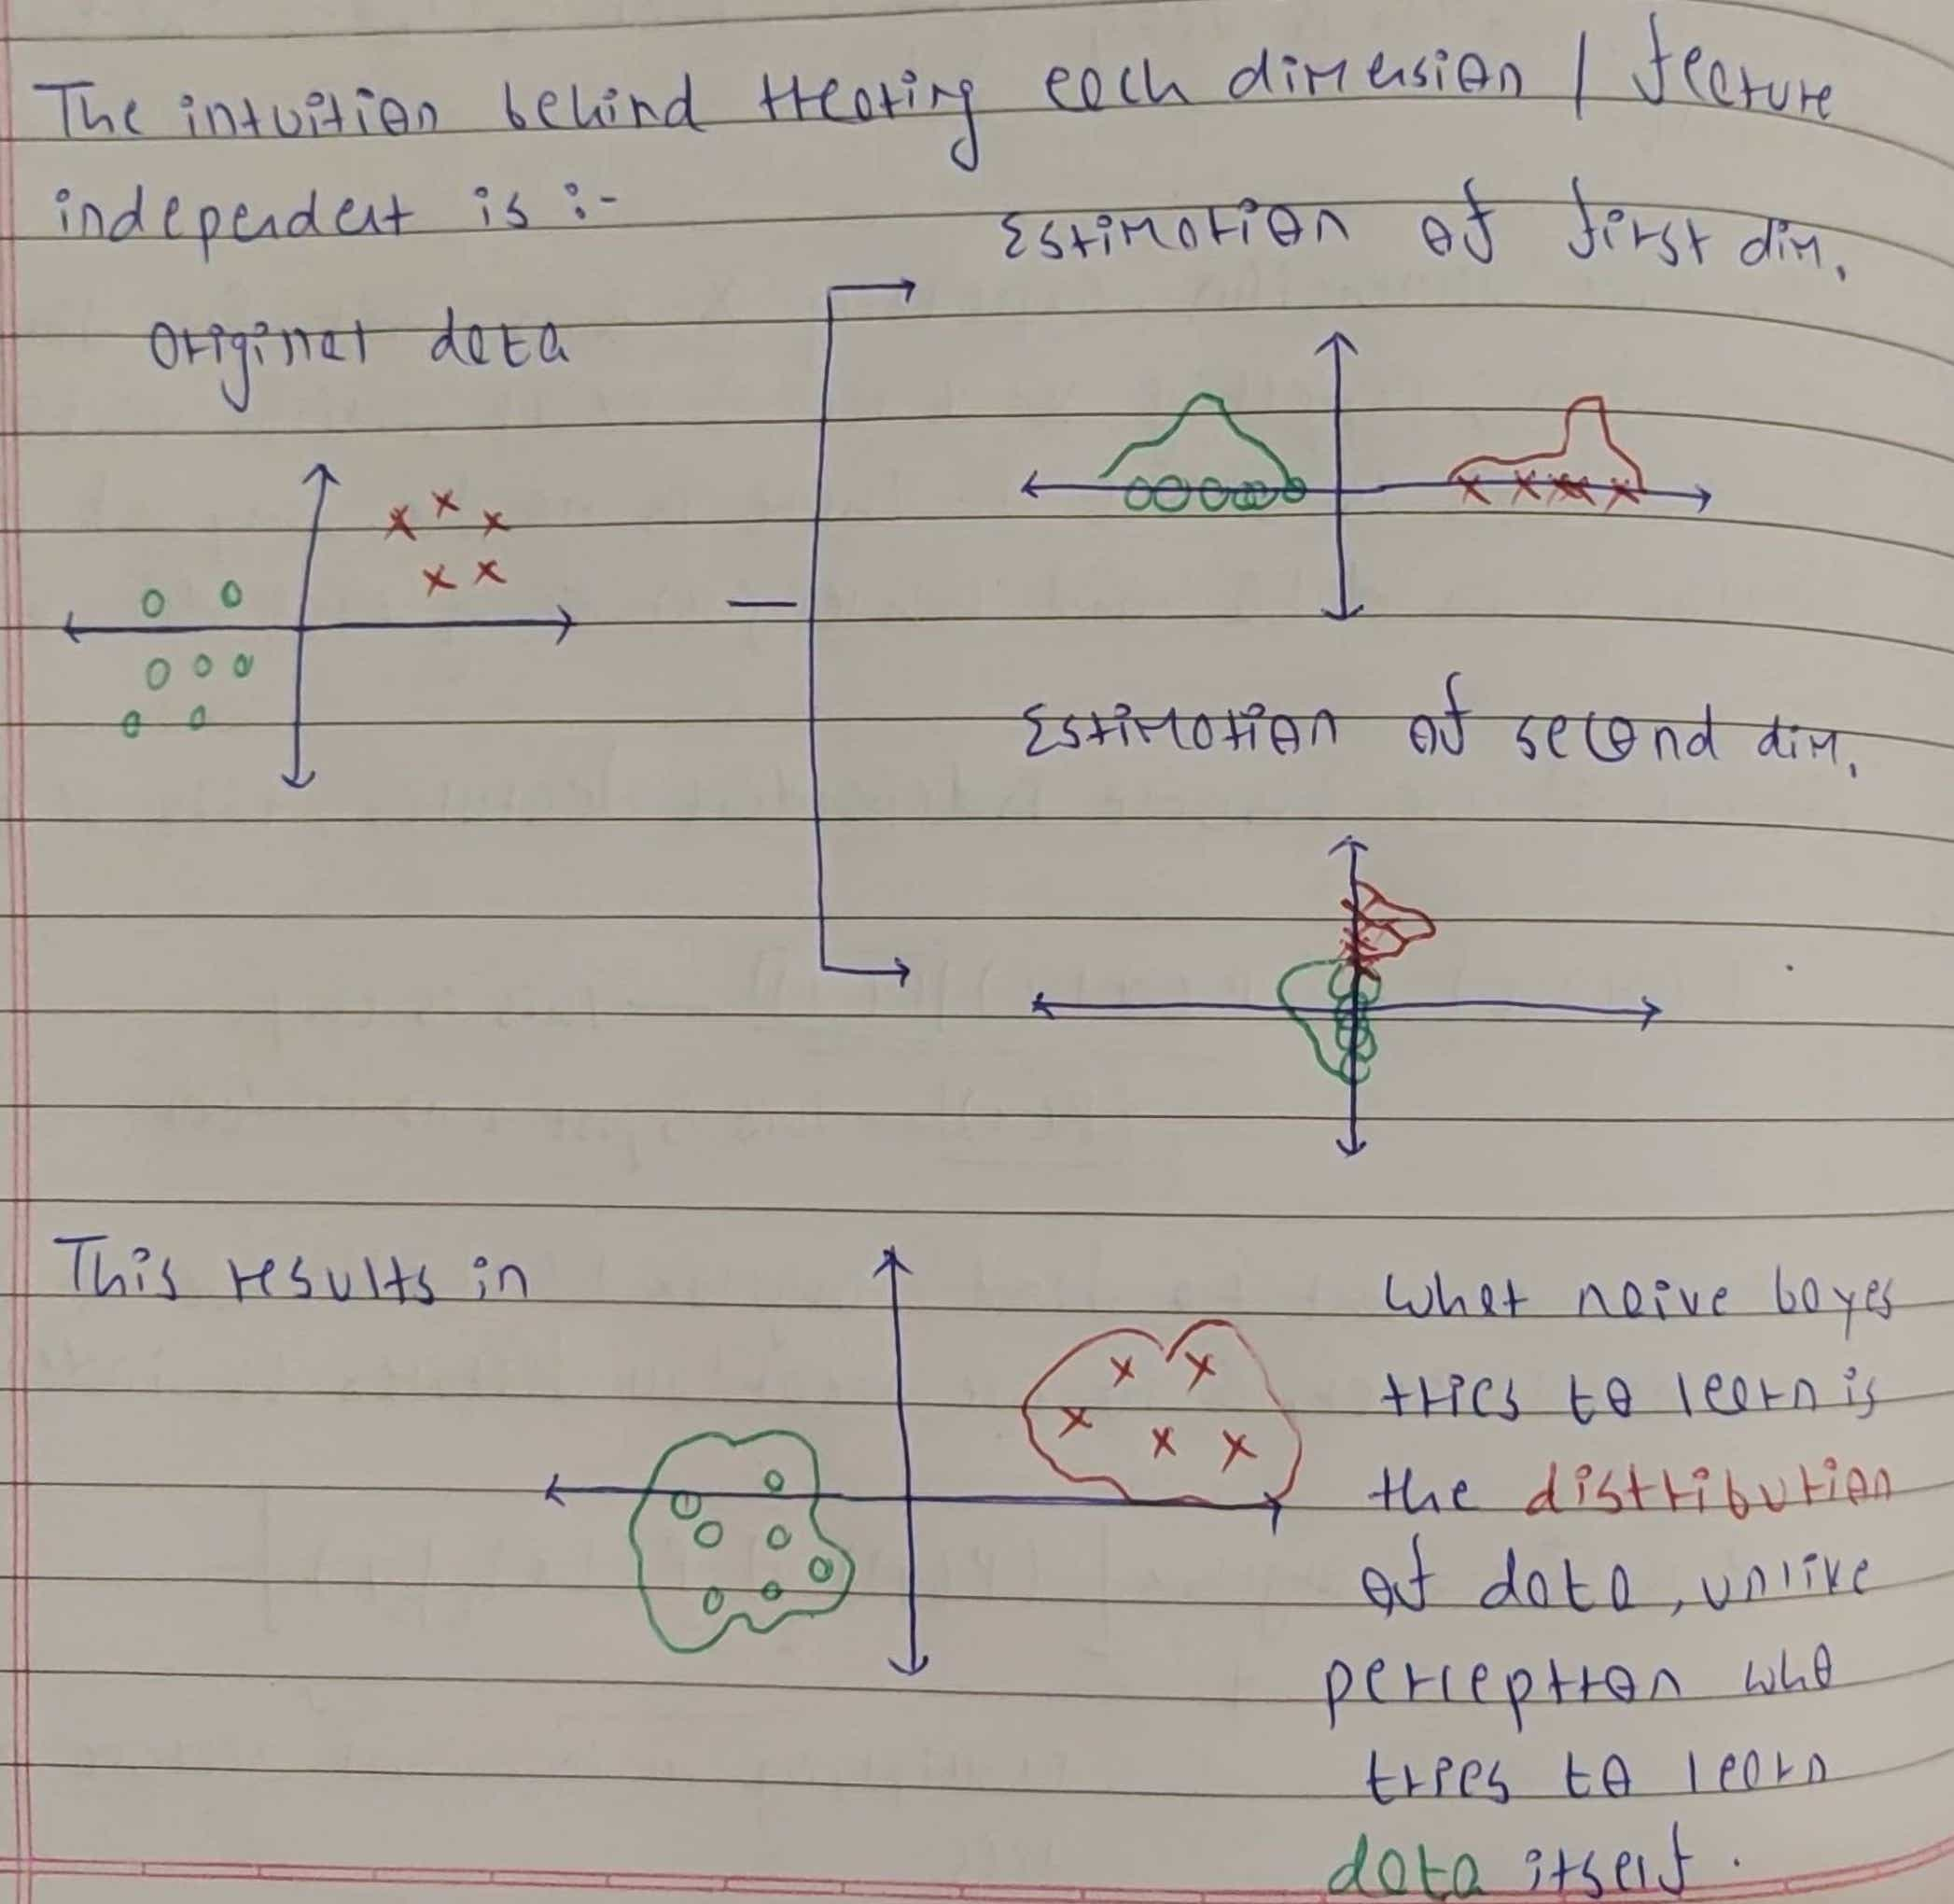 The intuition behind treating each dimension / feature
independent is :-
Original data
Estimation of first dim.
Estimation of second dim.
This results in
What naive bayes
tries to learn is
the distribution
of data, unlike
perceptron who
tries to learn
data itself.